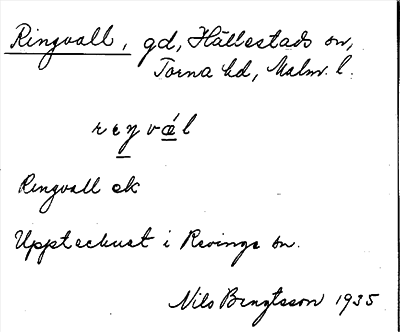 Ringvall, gd, Hällestads sn,
Torna hd, Malm. l.
Ringvall ek
Upptecknat i Revinge sn.
Nils Bengtsson 1935